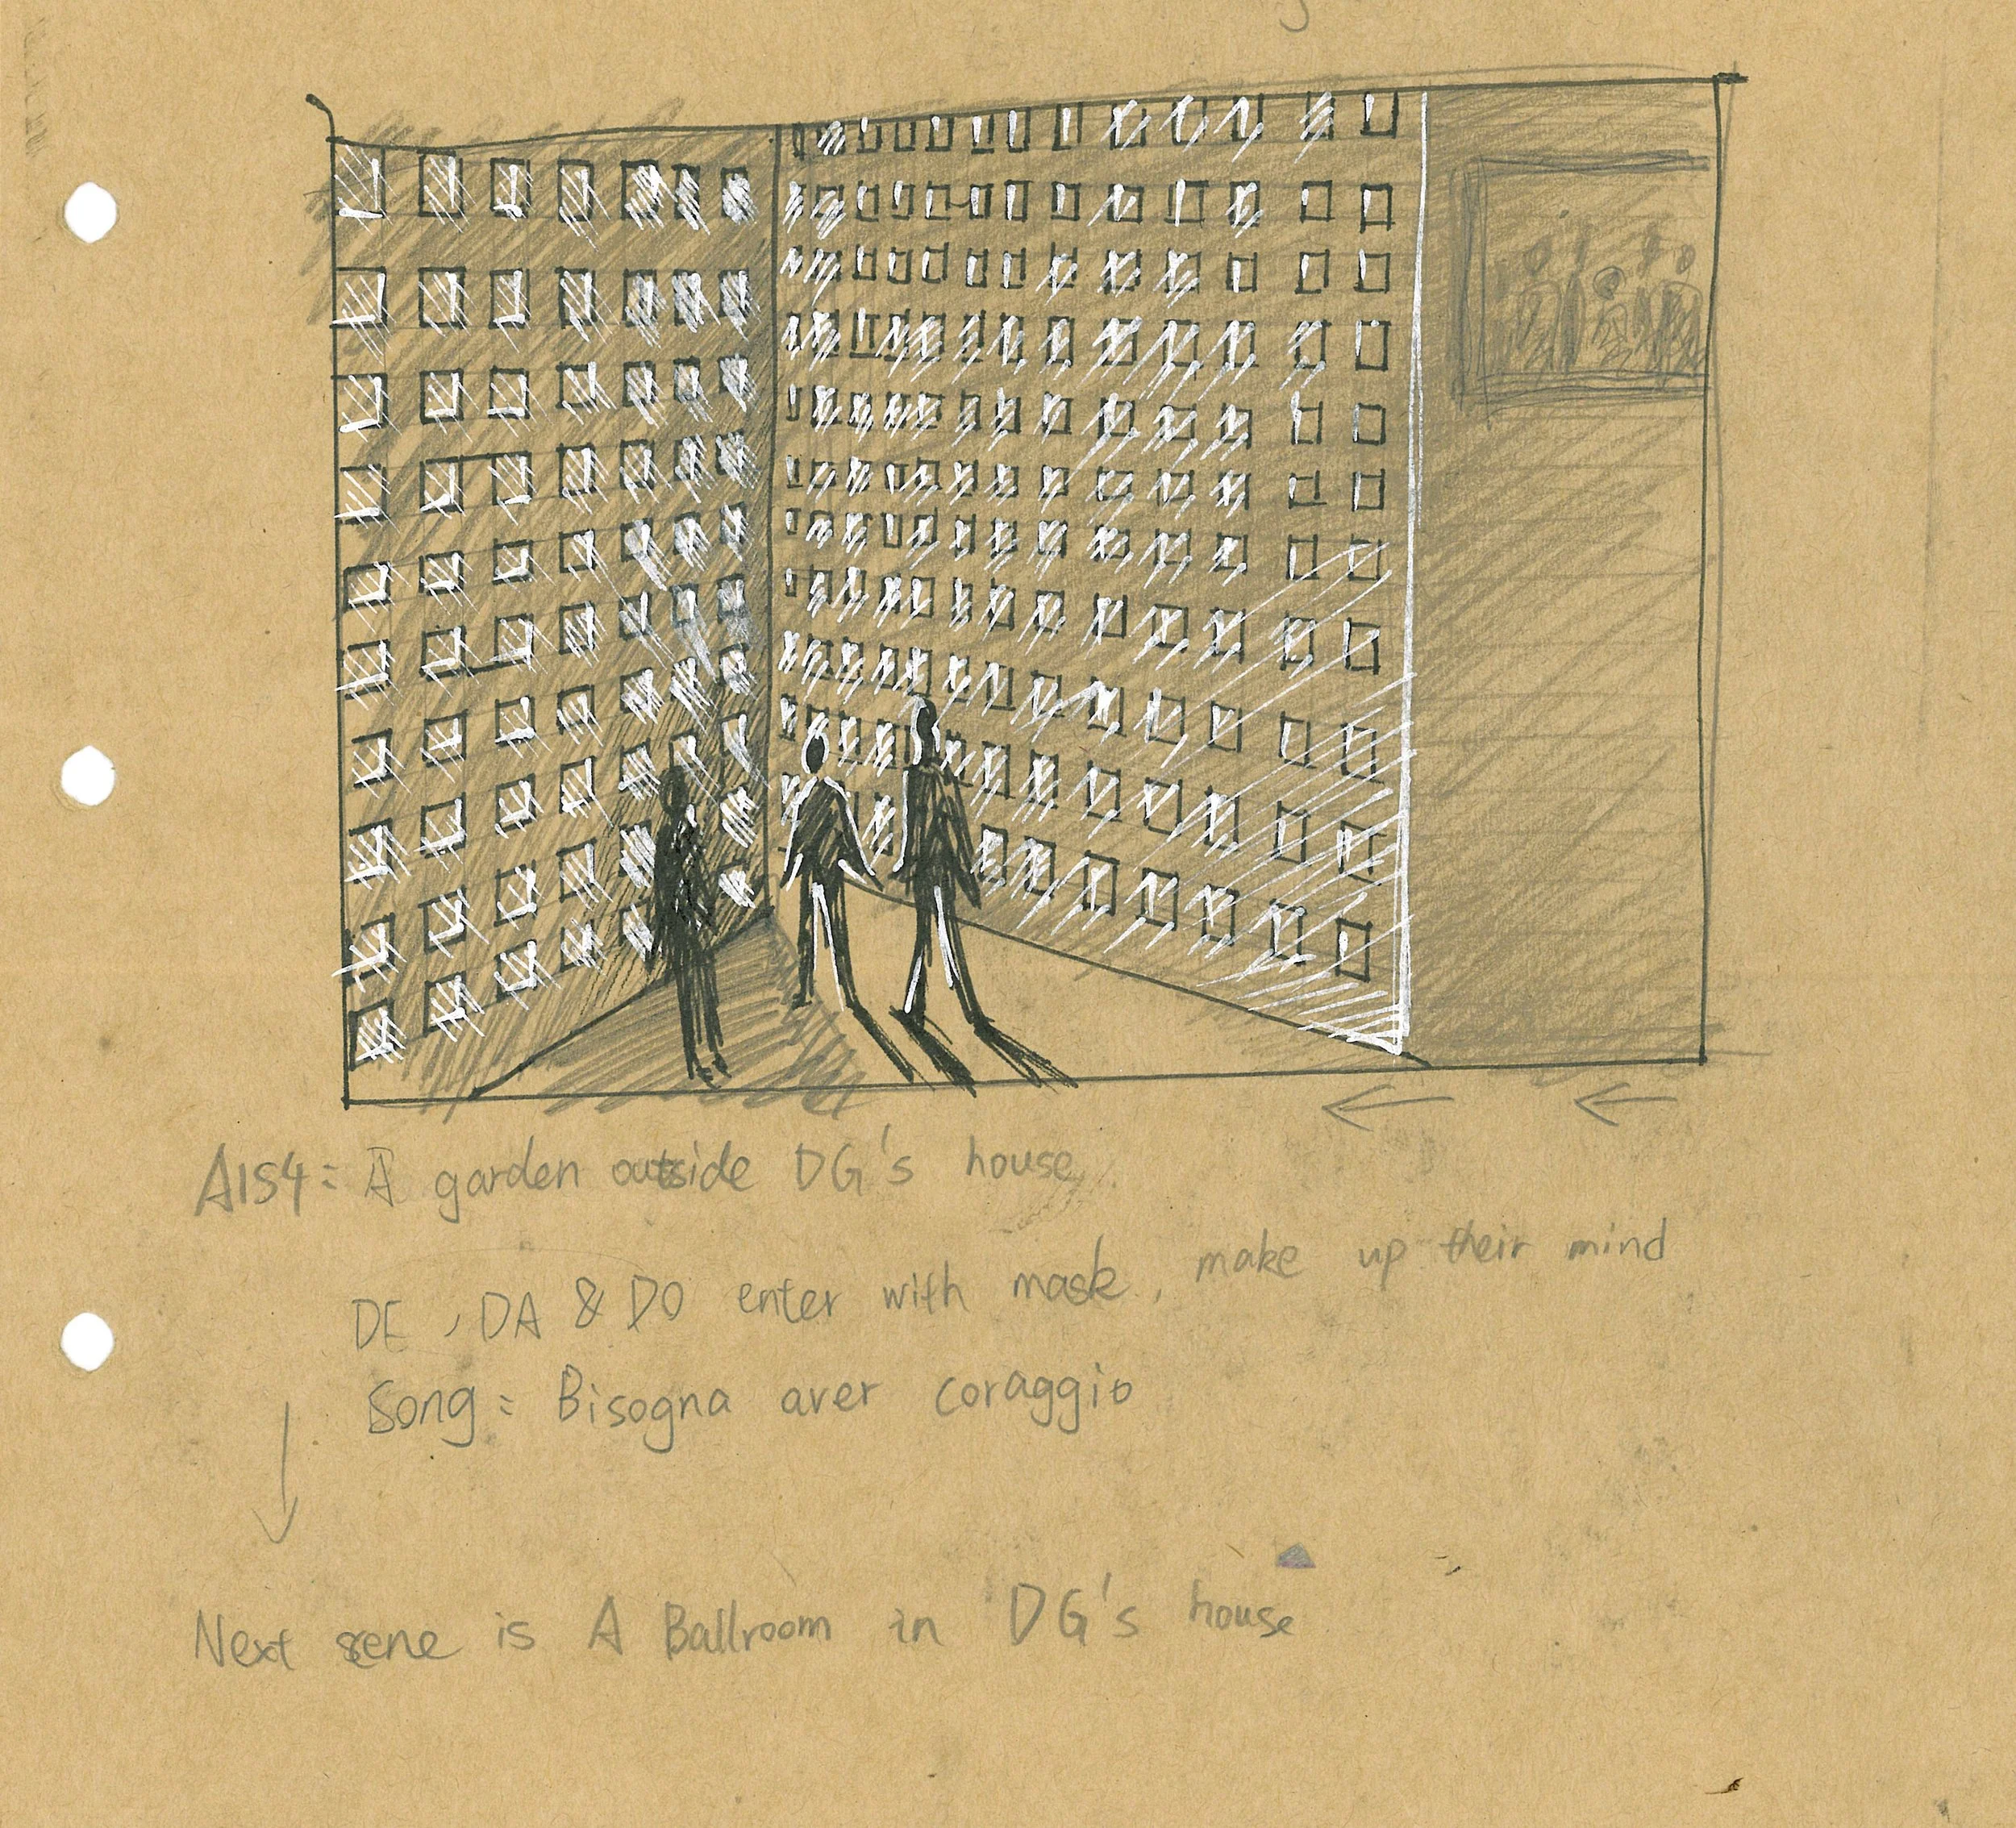 A1S4: A garden outside DG's house
DE, DA & DO enter with mask, make up their mind
Song: Bisogna aver coraggio
Next scene is A Ballroom in DG's house